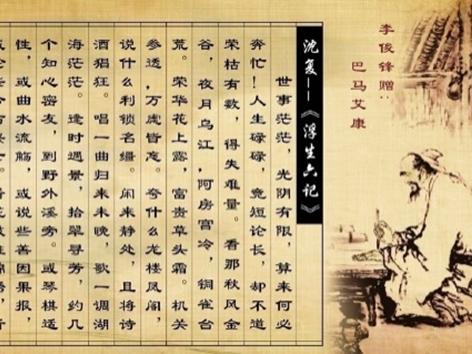 李俊锋赠：
巴马艾康
沈复——《浮生六记》
世事茫茫，光阴有限，算来何必
奔忙！人生碌碌，竞短论长，却不道
荣枯有数，得失难量。看那秋风金
谷，夜月乌江，阿房宫冷，铜雀台
荒。荣华花上露，富贵草头霜。机关
参透，万虑皆忘。夸什么龙楼凤阁，
说什么利锁名缰。闲来静处，且将诗
酒猖狂。唱一曲归来未晚，歌一调湖
海茫茫。逢时遇景，拾翠寻芳，约几
个知心密友，到野外溪旁。或琴棋适
性，或曲水流觞，或说些善因果报，